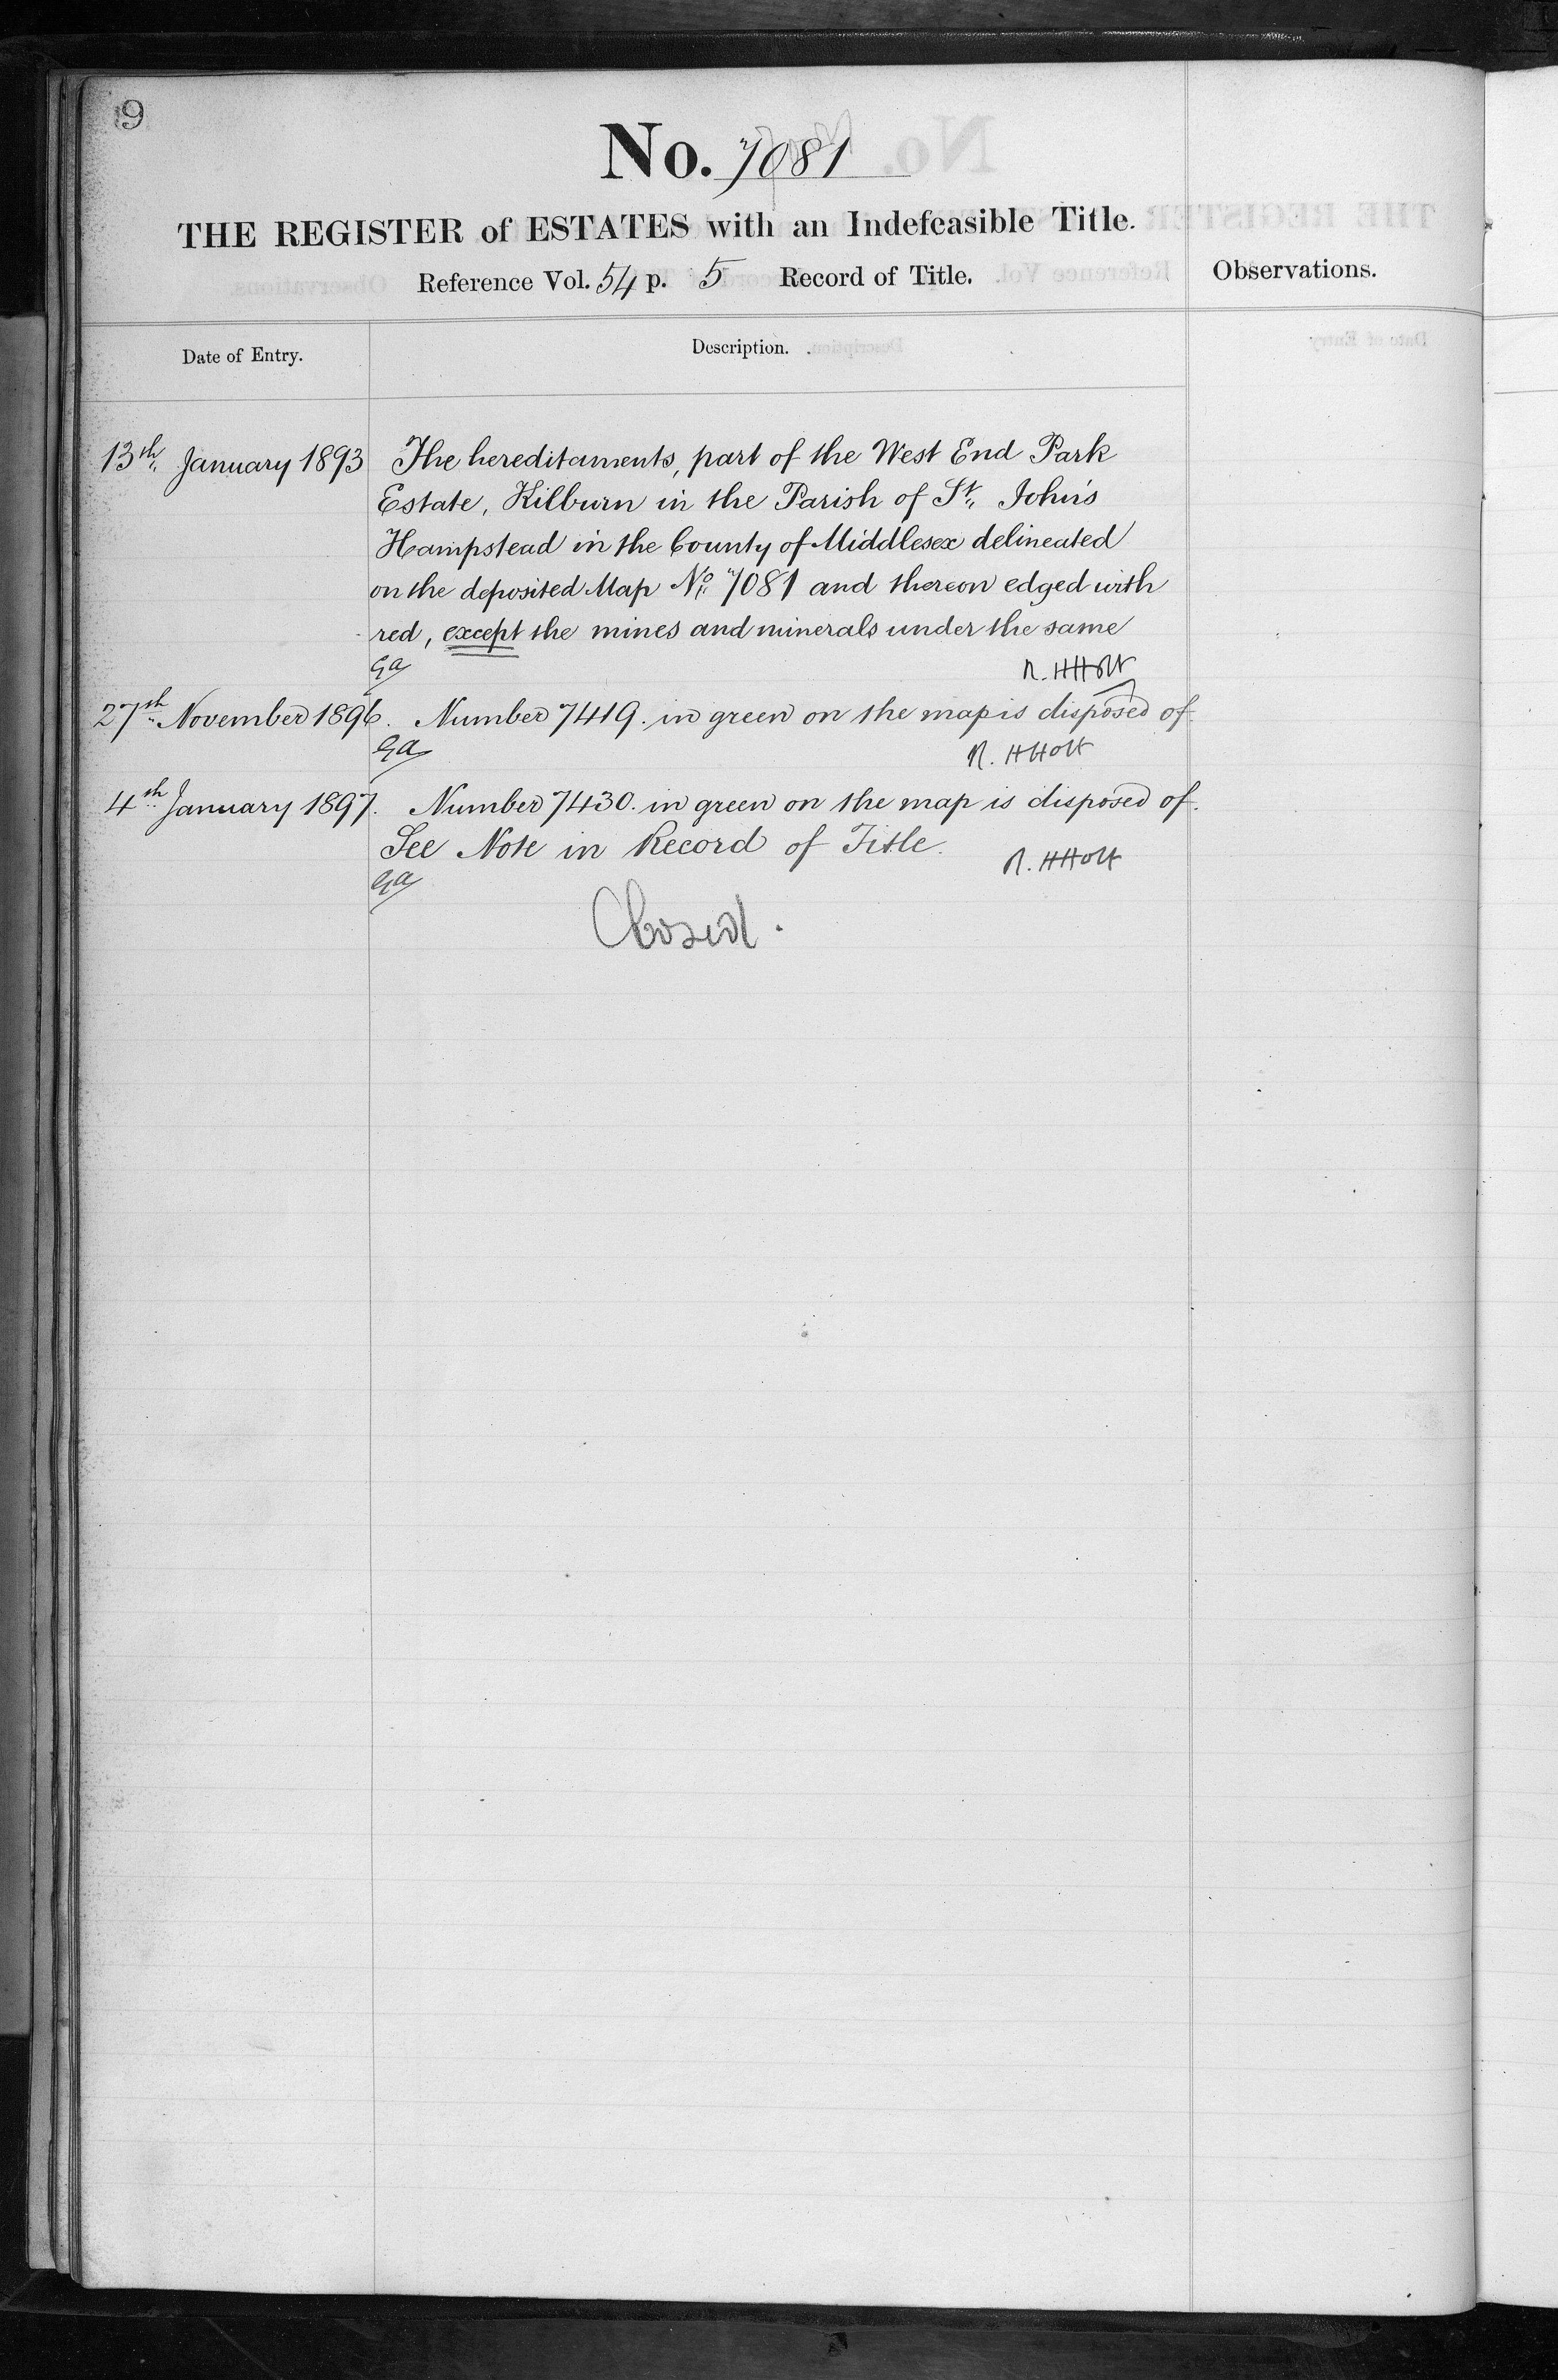 9
No. 7081
THE REGISTER of ESTATES with an Indefeasible Title.
Reference Vol. 54 p. 5 Record of Title.
Observations.
Date of Entry.
Description.
13th January 1893 The hereditaments, part of the West End Park
Estate, Kilburn in the Parish of St. John's
Hampstead in the County of Middlesex delineated
on the deposited Map No. 7081 and thereon edged with
red, except the mines and minerals under the same
R. H Holt
27th November 1896. Number 7419. in green on the map is disposed of
R. H Holt
4th January 1897. Number 7430. in green on the map is disposed of.
See Note in Record of Title.
R. H Holt
Closed.